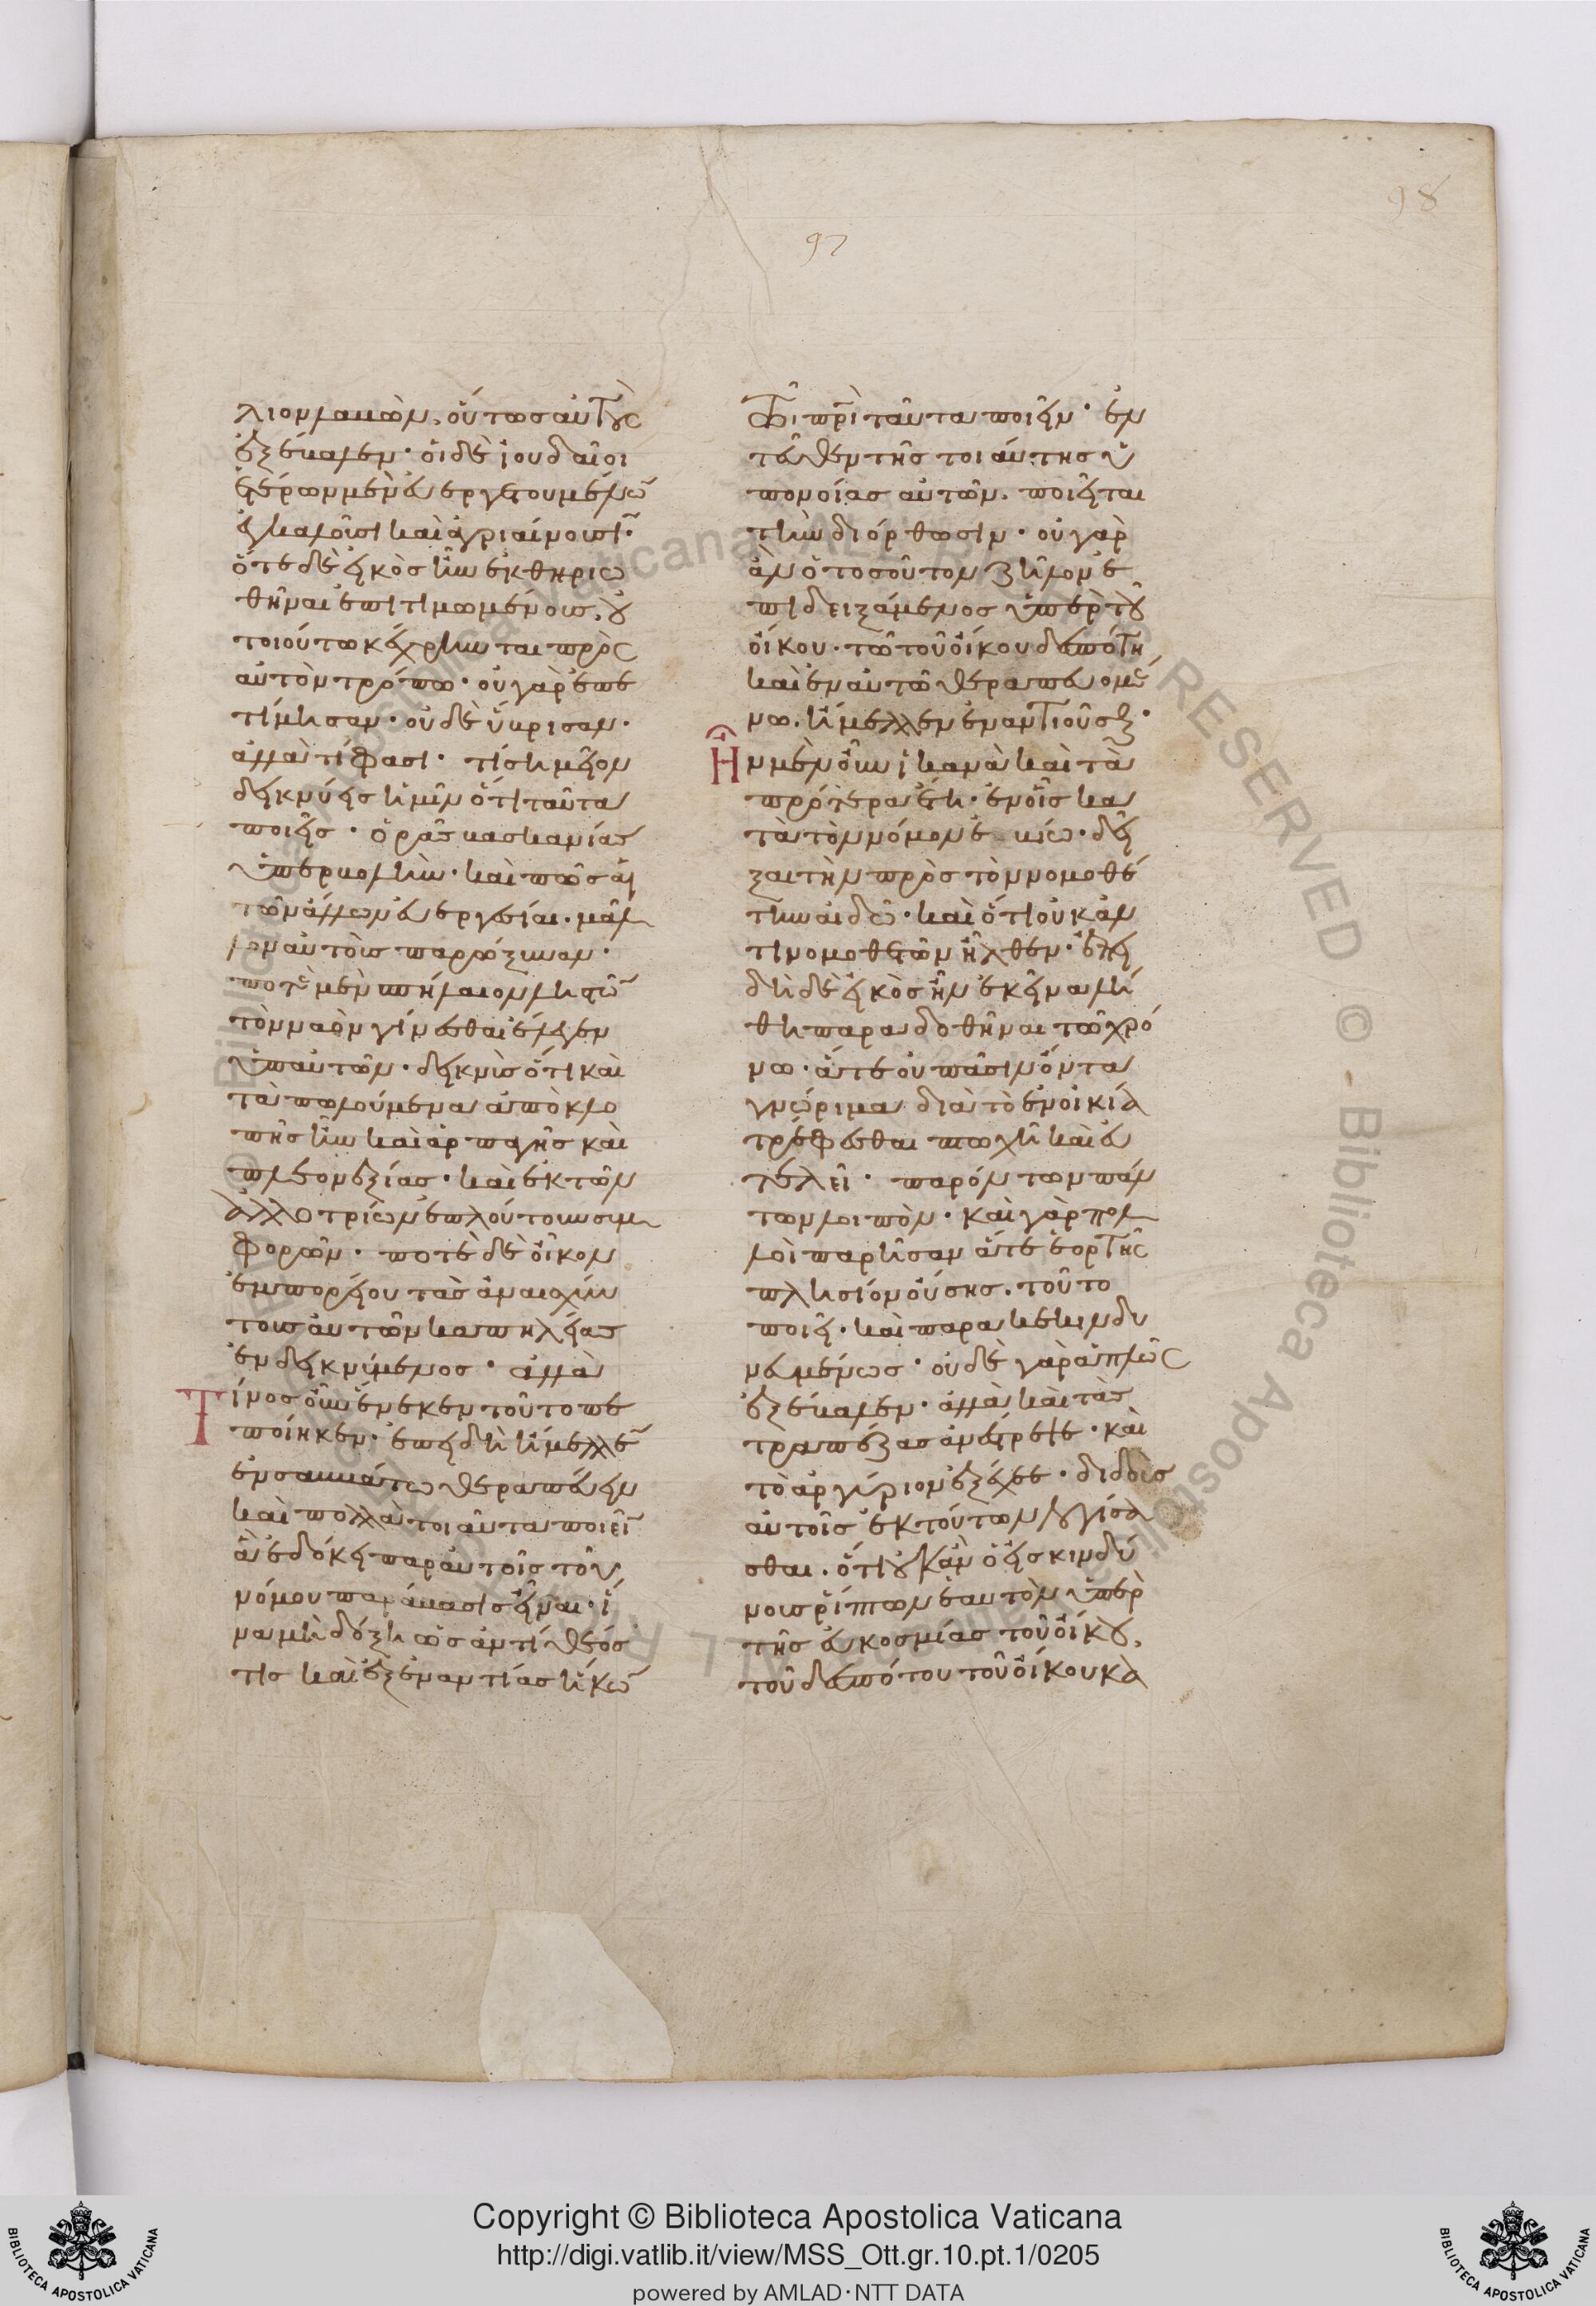 98
97
λιον λαβὼν, οὕτως αὐτοὺς
ἐξέβαλεν· οἱ δὲ ἰουδαῖοι
ἑτέρων μὲν εὐεργετουμένων
ἐγκαλοῦσι καὶ ἀγριαίνουσιν·
ὅτε δὲ εἰκὸς ἦν ἐκθηριω
θῆναι ἐπιτιμωμένους, οὐ
τοιούτω κέχρηνται πρὸς
αὐτὸν τρόπω· οὐ γὰρ ἐπε
τίμησαν· οὐδὲ ὕβρισαν·
ἀλλὰ τί φασι· τί σημεῖον
δεικνύεις ἡμῖν ὅτι ταῦτα
ποιεῖς· ὁρᾶς βασκανίας
ὑπερβολήν· καὶ πῶς αἱ
τῶν ἄλλων εὐεργεσίαι· μᾶλ
λον αὐτοὺς παρώξυναν·
ποτὲ μὲν σπήλαιον ληστῶν
τὸν ναὸν γίνεσθαι ἔλεγεν
ὑπ' αὐτῶν· δεικνὺς ὅτι καὶ
τὰ πωλούμενα ἀπὸ κλο
πῆς ἦν καὶ ἁρπαγῆς καὶ
πλεονεξίας· καὶ ἐκ τῶν
ἀλλοτρίων ἐπλούτουν συμ
φορῶν· ποτὲ δὲ οἶκον
ἐμπορίου τὰς ἀναισχύν
τους αὐτῶν καπηλείας
ἐνδεικνύμενος· ἀλλὰ
Τίνος οὖν ἕνεκεν τοῦτο πε
ποίηκεν· ἐπειδὴ ἤμελλεν
ἐν σαββάτω θεραπεύειν
καὶ πολλὰ τοιαῦτα ποιεῖν
ἃ ἐδόκει παρ' αὐτοῖς τοῦ
νόμου παράβασις εἶναι· ἵ
να μὴ δόξη ὡς ἀντίθεός
τις καὶ ἐξ ἐναντίας ἥκων
τῶ πατρὶ ταῦτα ποιεῖν· ἐν
τεῦθεν τῆς τοιαύτης ὑ
πονοίας αὐτῶν, ποιεῖται
τὴν διόρθωσιν· οὐ γὰρ
ἂν ὁ τοσοῦτον ζῆλον ἐ
πιδειξάμενος ὑπὲρ τοῦ
οἴκου· τῶ τοῦ οἴκου δεσπότη
καὶ ἐν αὐτῶ θεραπευομέ
νω, ἤμελλεν ἐναντιοῦσθαι·
Ἦν μὲν οὖν ἱκανὰ καὶ τὰ
πρότερα ἔτη· ἐν οἷς κα
τὰ τὸν νόμον ἐβίω· δεῖ
ξαι τὴν πρὸς τὸν νομοθέ
την αἰδῶ· καὶ ὅτι οὐκ ἀν
τινομοθετῶν ἦλθεν· ἐπει
δὴ δὲ εἰκὸς ἦν ἐκεῖνα λή
θη παραδοθῆναι τῶ χρό
νω· ἅτε οὐ πᾶσιν ὄντα
γνώριμα διὰ τὸ ἐν οἰκία
τρέφεσθαι πτωχῆ καὶ εὐ
τελεῖ· παρόντων πάν
των λοιπὸν· καὶ γὰρ πολ
λοὶ παρῆσαν ἅτε ἑορτῆς
πλησίον οὔσης, τοῦτο
ποιεῖ· καὶ παρακεκινδυ
νευμένως· οὐδὲ γὰρ ἁπλῶς
ἐξέβαλεν· ἀλλὰ καὶ τὰς
τραπέζας ἀνέτρεψε· καὶ
τὸ ἀργύριον ἐξέχεε· διδοὺς
αὐτοῖς ἐκ τούτων λογίζε
σθαι, ὅτι οὐκ ἂν ὁ εἰς κινδύ
νους ῥίπτων ἑαυτὸν ὑπὲρ
τῆς εὐκοσμίας τοῦ οἴκου,
τοῦ δεσπότου τοῦ οἴκου κα
Copyright © Biblioteca Apostolica Vaticana
http://digi.vatlib.it/view/MSS_Ott.gr.10.pt.1/0205
powered by AMLAD·NTT DATA
BIBLIOTECA APOSTOLICA VATICANA
BIBLIOTECA APOSTOLICA VATICANA